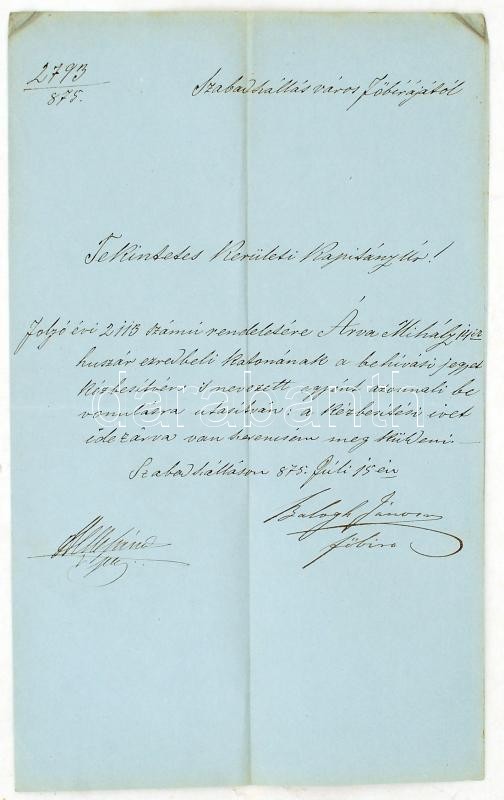 2793
875.
Szabadszállás város Főbírájától
Tekintetes Kerületi Kapitány Úr!
Folyó évi 2113 számú rendeletére Árva Mihály
huszár ezredbeli katonának a behivási jegyet
kézbesitvén s nevezett egyént azonnali be
vonulásra utasitván: a kézbesitési ivet
ide zárva van szerencsém meg küldeni.
Szabadszálláson 875. Júli 15én
Balogh János
főbiró
darabanth